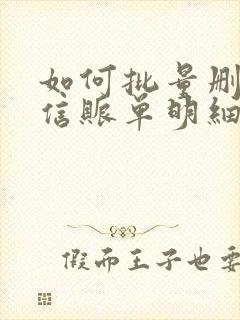 如何批量删
信账单明细
假而王子也要